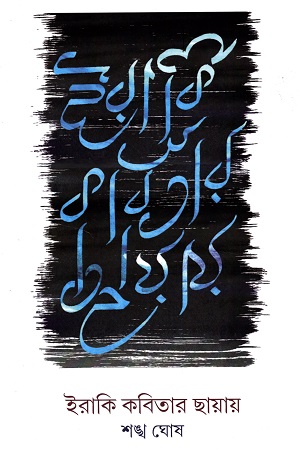 ইরাকি
কবিতার
ছায়ায়
ইরাকি কবিতার ছায়ায়
শঙ্খ ঘোষ